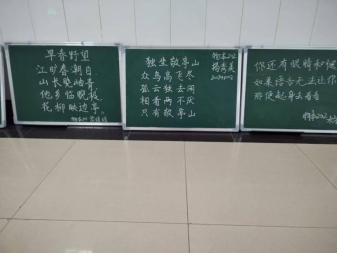 早春野望
江旷春潮白
山长晓岫青
他乡临眺极
花柳映边亭
独坐敬亭山
众鸟高飞尽
孤云独去闲
相看两不厌
只有敬亭山
你还有眼睛和
如果语言无法让你
那便起身去看看